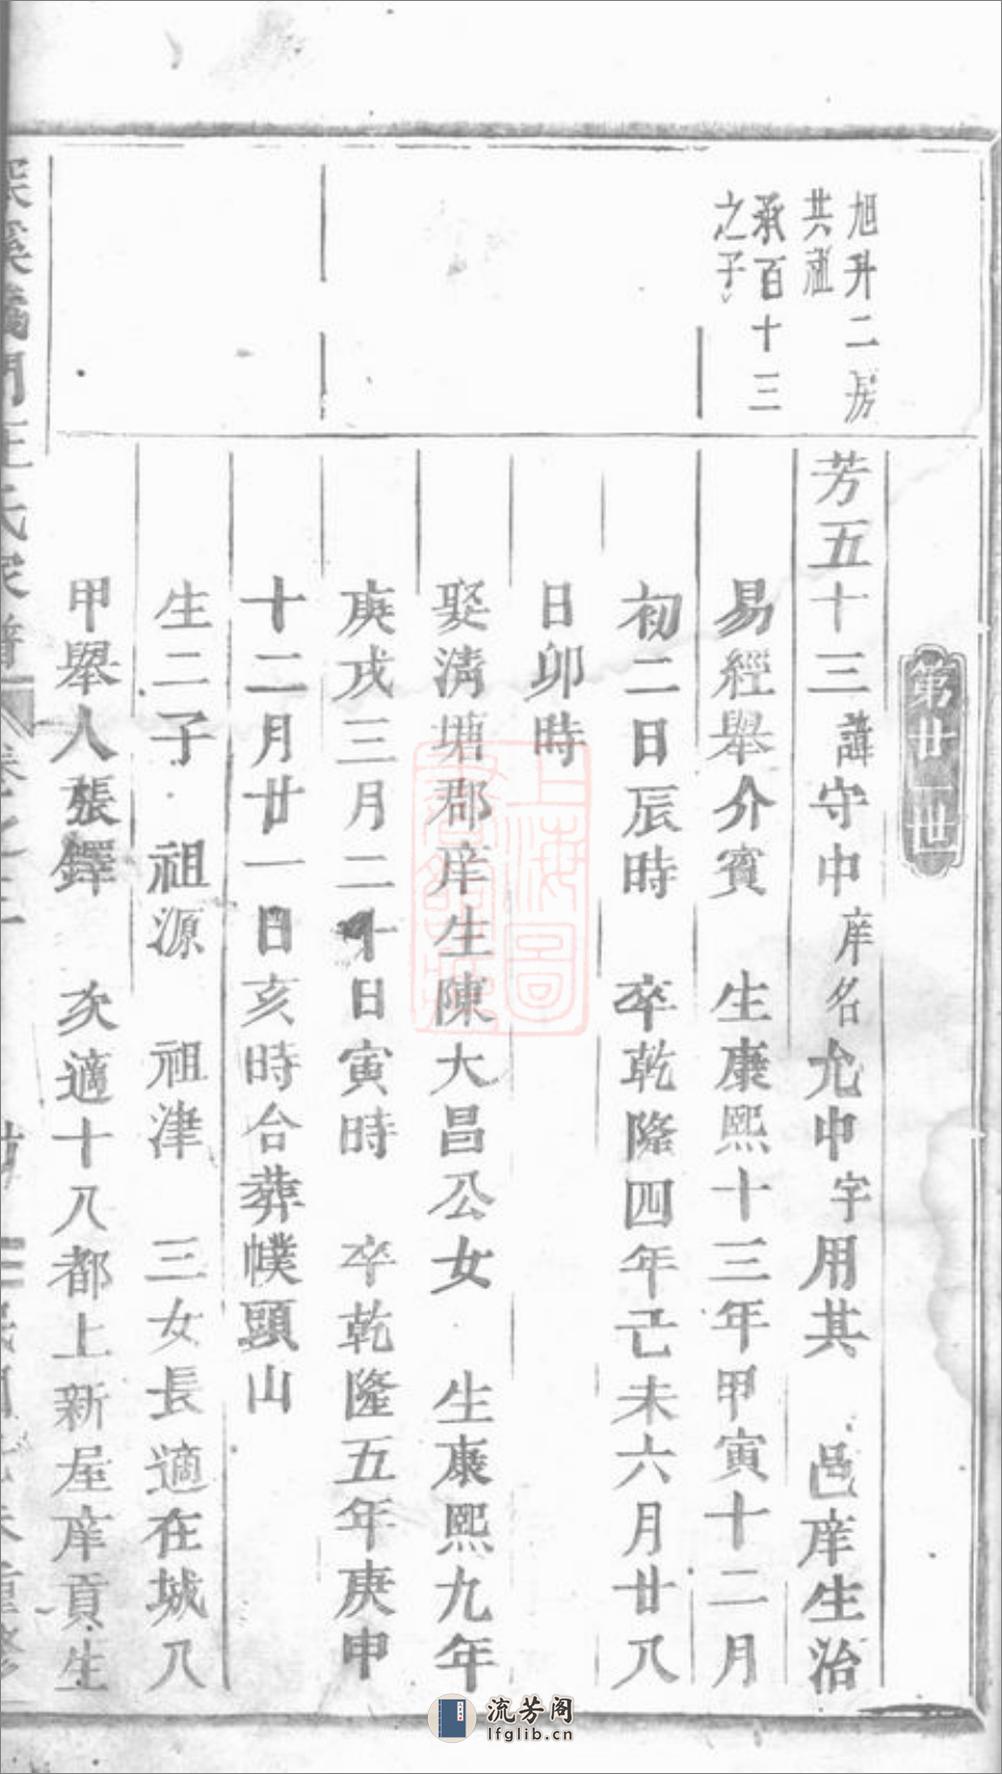 第廿一世
旭升二房
共祖
承百十三
之子
芳五十三諱守中庠名允中字用其 邑庠生治
易經舉介賓 生康熙十三年甲寅十二月
初二日辰時 卒乾隆四年己未六月廿八
日卯時
娶清塘郡庠生陳大昌公女 生康熙九年
庚戌三月二十日寅時 卒乾隆五年庚申
十二月廿一日亥時合葬幞頭山
生二子 祖源 祖津 三女長適在城八
甲舉人張鐸 次適十八都上新屋庠貢生
上海圖
流芳阁
lfglib.cn